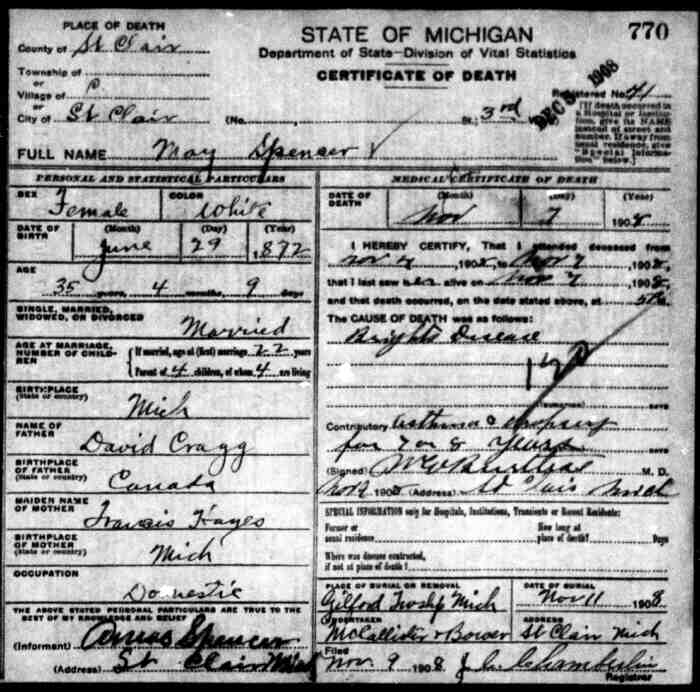 770
PLACE OF DEATH
STATE OF MICHIGAN
County of St Clair
Department of State—Division of Vital Statistics
Township of
or
Village of
CERTIFICATE OF DEATH
DEC 5 1908
Registered No. 71
or
City of St Clair (No. St.; 3rd
[If death occurred in
a Hospital or Institu-
tion, give its NAME
instead of street and
number. If away from
usual residence, give
"Special Informa-
tion" below.]
FULL NAME May Spencer
PERSONAL AND STATISTICAL PARTICULARS
SEX Female
COLOR White
DATE OF
BIRTH
(Month) (Day) (Year)
June 29 1872
AGE
35 years, 4 months, 9 days
SINGLE, MARRIED,
WIDOWED, OR DIVORCED
Married
AGE AT MARRIAGE,
NUMBER OF CHILD-
REN
If married, age at (first) marriage 22 years
Parent of 4 children, of whom 4 are living
BIRTHPLACE
(State or country)
Mich
NAME OF
FATHER
David Cragg
BIRTHPLACE
OF FATHER
(State or country)
Canada
MAIDEN NAME
OF MOTHER
Francis Hayes
BIRTHPLACE
OF MOTHER
(State or country)
Mich
OCCUPATION
Domestic
THE ABOVE STATED PERSONAL PARTICULARS ARE TRUE TO THE
BEST OF MY KNOWLEDGE AND BELIEF
(Informant) Amos Spencer
(Address) St Clair Mich
MEDICAL CERTIFICATE OF DEATH
DATE OF
DEATH
(Month) (Day) (Year)
Nov 7 1908
I HEREBY CERTIFY, That I attended deceased from
Nov 4, 1908, to Nov 7, 1908,
that I last saw her alive on Nov 7, 1908,
and that death occurred, on the date stated above, at 5 P.M.
The CAUSE OF DEATH was as follows:
Brights Disease
120
DAYS
Contributory asthma & dropsy
for 7 or 8 years
DAYS
(Signed) M. D.
Nov 9 1908 (Address) St Clair Mich
SPECIAL INFORMATION only for Hospitals, Institutions, Transients or Recent Residents:
Former or
usual residence
How long at
place of death? Days
Where was disease contracted,
if not at place of death?
PLACE OF BURIAL OR REMOVAL
Gilford Twship Mich
DATE OF BURIAL
Nov 11 1908
UNDERTAKER
McCallister & Bower
ADDRESS
St Clair Mich
Filed
Nov. 9 1908 Chamberlin
Registrar